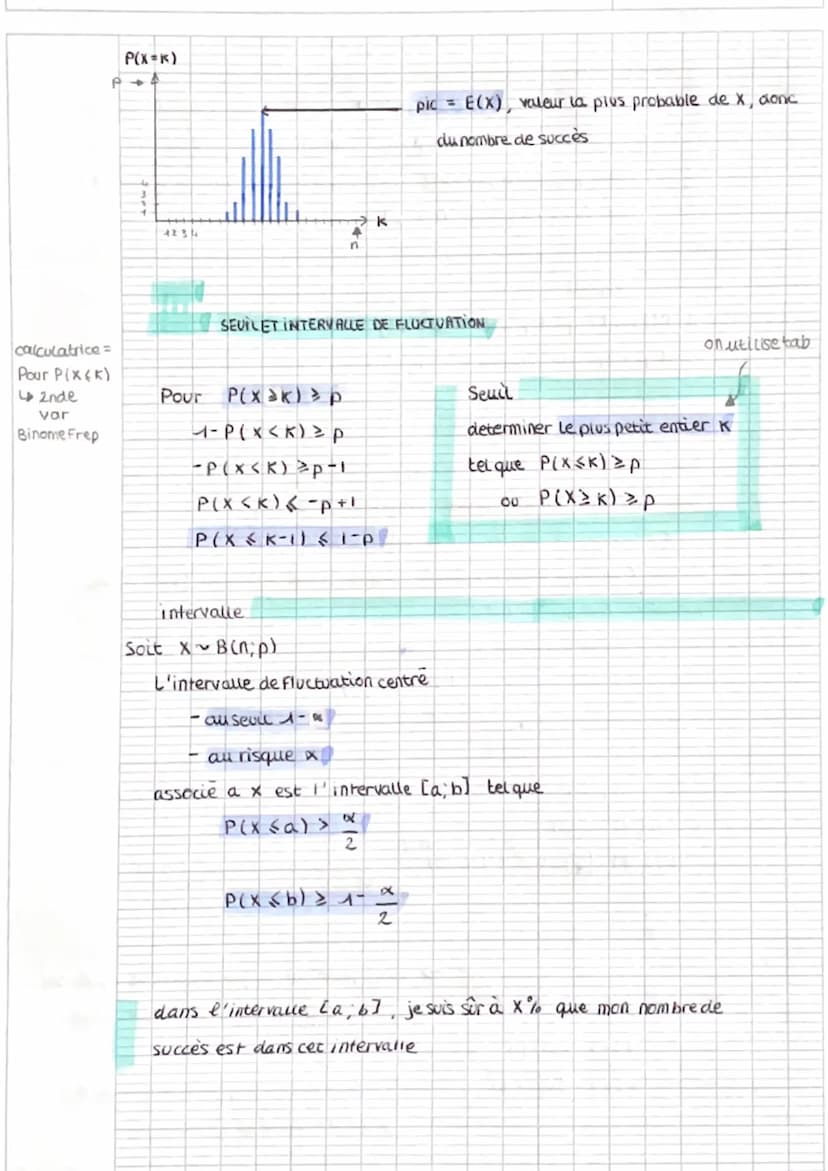 P(X=K)
P →
pic = E(X), valeur la plus probable de X, donc
du nombre de succès
4
3
2
1
1 2 3 4
K
n
III
SEUIL ET INTERVALLE DE FLUCTUATION
calculatrice =
Pour P(X≤K)
↳ 2nde
var
BinomeFrep
Pour P(X≥K) ≥ p
1-P(X<K) ≥ p
-P(X<K) ≥ p-1
P(X<K) ≤ -p+1
P(X ≤ K-1) ≤ 1-p
on utilise tab
Seuil
determiner le plus petit entier K
tel que P(X≤K) ≥ p
ou P(X≥K) ≥ p
intervalle
Soit X ~ B(n;p)
L'intervalle de fluctuation centré
- au seuil 1-α
- au risque α
associé a X est l'intervalle [a;b] tel que
P(X≤a) > α/2
P(X≤b) ≥ 1- α/2
dans l'intervalle [a;b], je suis sûr à X% que mon nombre de
succès est dans cet intervalle